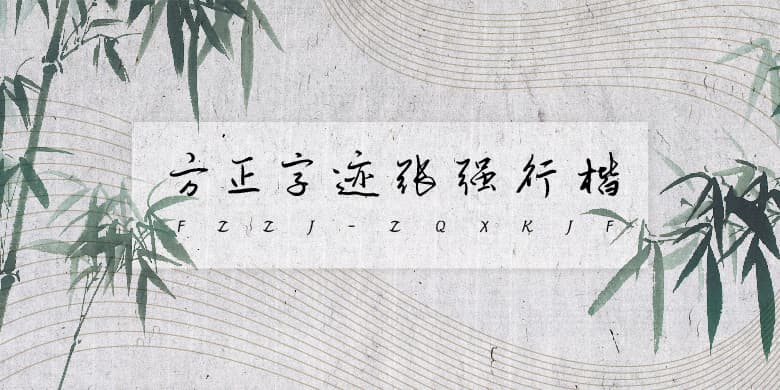 方正字迹张强行楷
FZZJ-ZQXKJF